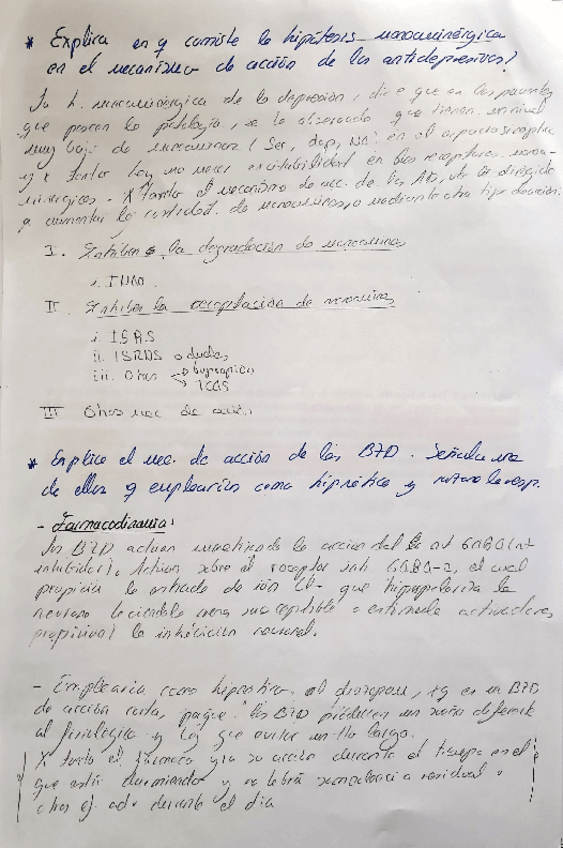 * Explica en q consiste la hipótesis monoaminérgica
en el mecanismo de acción de los antidepresivos?
La h. monoaminérgica de la depresión, dice que en los pacientes
que posean la patología, se ha observado que tienen un nivel
muy bajo de monoaminas (Ser, dop, NA) en el espacio sináptico
y x tanto hay una menor excitabilidad en los receptores mono-
minérgicos. X tanto el mecanismo de acc. de los ADs, va dirigido
a aumentar la cantidad de monoaminas, mediante otro tipo
I. Inhiben la degradación de monoaminas
i. IMAO.
II. Inhiben la recaptación de monoaminas
i. ISRS
ii. ISRNS o duales
iii. Otros → bupropion
→ TCAs
III Otros mec de acción
* Explica el mec. de acción de los BZD. Señala una
de ellas q emplearías como hipnótico y razona la resp.
- Farmacodinamia:
Los BZD actúan la acción del GABA (nt
inhibidor). Actúan sobre el receptor GABA-, el cual
propicia la entrada de ión Cl- que hiperpolariza la
neurona haciéndola menos susceptible a estímulos activadores
propicia la inhibición neuronal.
- Emplearía como hipnótico el , xq es un BZD
de acción corta, pque los BZD producen un sueño diferente
al fisiológico y hay que evitar un tto largo.
X tanto el fármaco su acción durante el tiempo en el
que estés durmiendo y no habrá somnolencia residual o
otros ef. adv durante el día